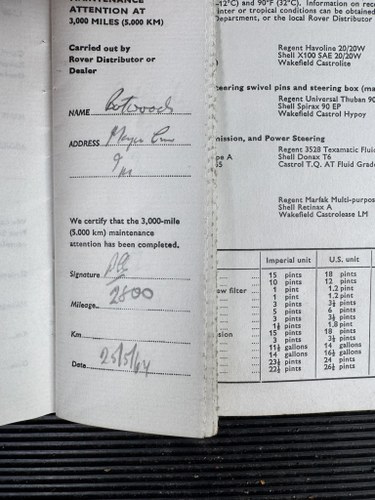 MAINTENANCE
ATTENTION AT
3,000 MILES (5.000 KM)
Carried out by
Rover Distributor or
Dealer
NAME
ADDRESS
We certify that the 3,000-mile
(5.000 km) maintenance
attention has been completed.
Signature
Mileage 2800
Km
Date 25/5/64
-12°C) and 90°F (32°C). Information on rec
inter or tropical conditions can be obtained
Department, or the local Rover Distributor
Regent Havoline 20/20W
Shell X100 SAE 20/20W
Wakefield Castrolite
teering swivel pins and steering box (ma
Regent Universal Thuban 90
Shell Spirax 90 EP
Wakefield Castrol Hypoy
mission, and Power Steering
Regent 3528 Texamatic Fluid
pe A Shell Donax T6
Castrol T.Q. AT Fluid Grade
Regent Marfak Multi-purpos
Shell Retinax A
Wakefield Castrolease LM
Imperial unit U.S. unit
15 pints 18 pints
10 pints 12 pints
ew filter 1 pint 1.2 pint
1 pint 1.2 pint
3 pints 3½ pints
5 pints 6 pints
3 pints 3½ pints
1½ pints 1.8 pint
sion 15 pints 18 pints
3 pints 3½ pints
11½ gallons 14 gallons
14 gallons 16½ gallons
pints 24 pints
22½ pints 26½ pints